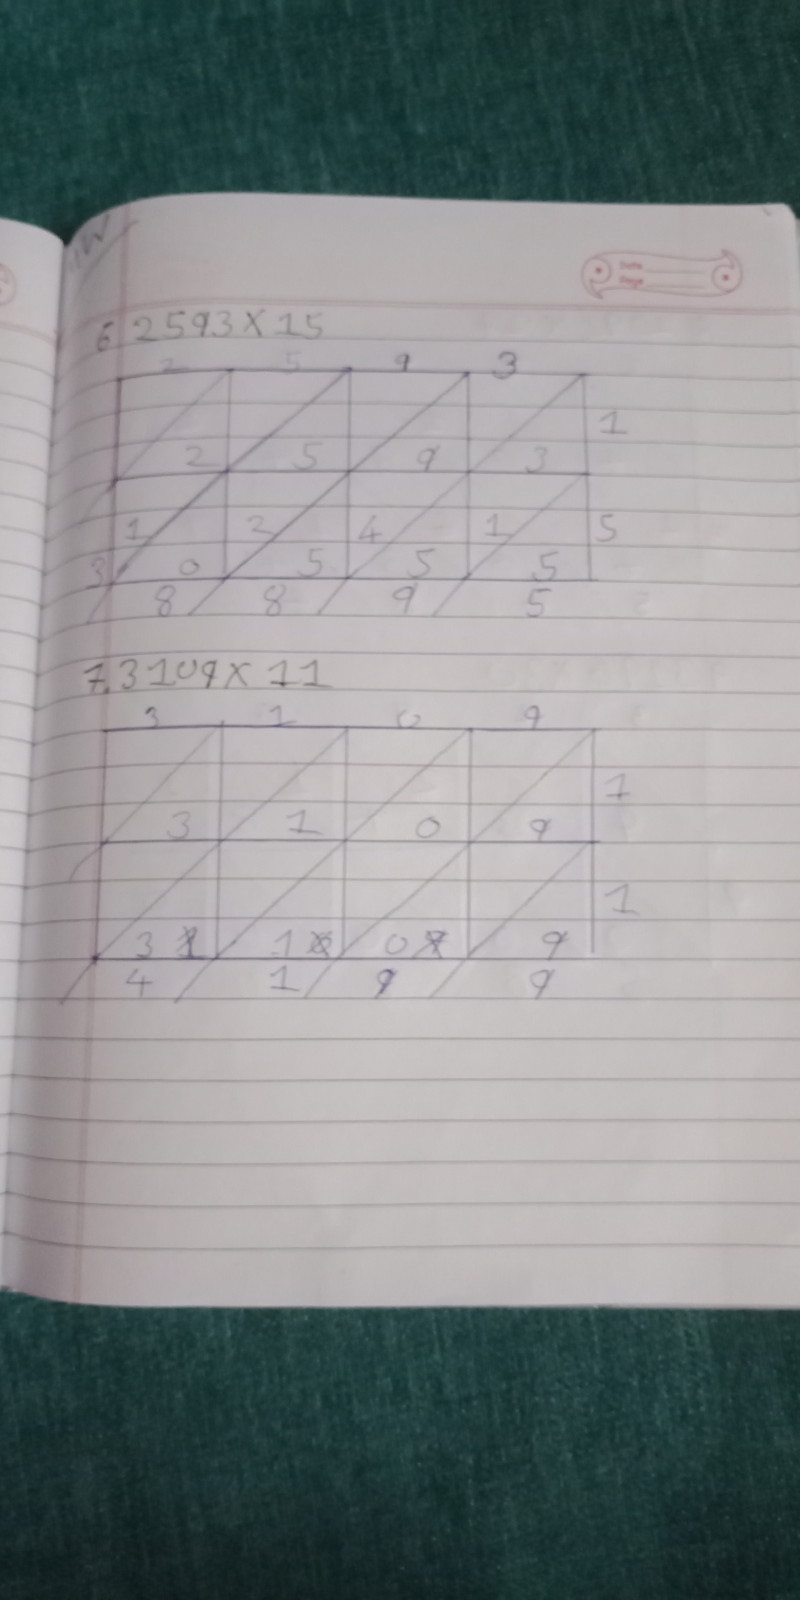 HW
Date
Page
6 2593 X 15
2 5 9 3
1
2 5 9 3
1 2 4 1 5
3 0 5 5 5
8 8 9 5
7. 3109 X 11
3 1 0 9
1
3 1 0 9
1
3 1 0 9
4 1 9 9